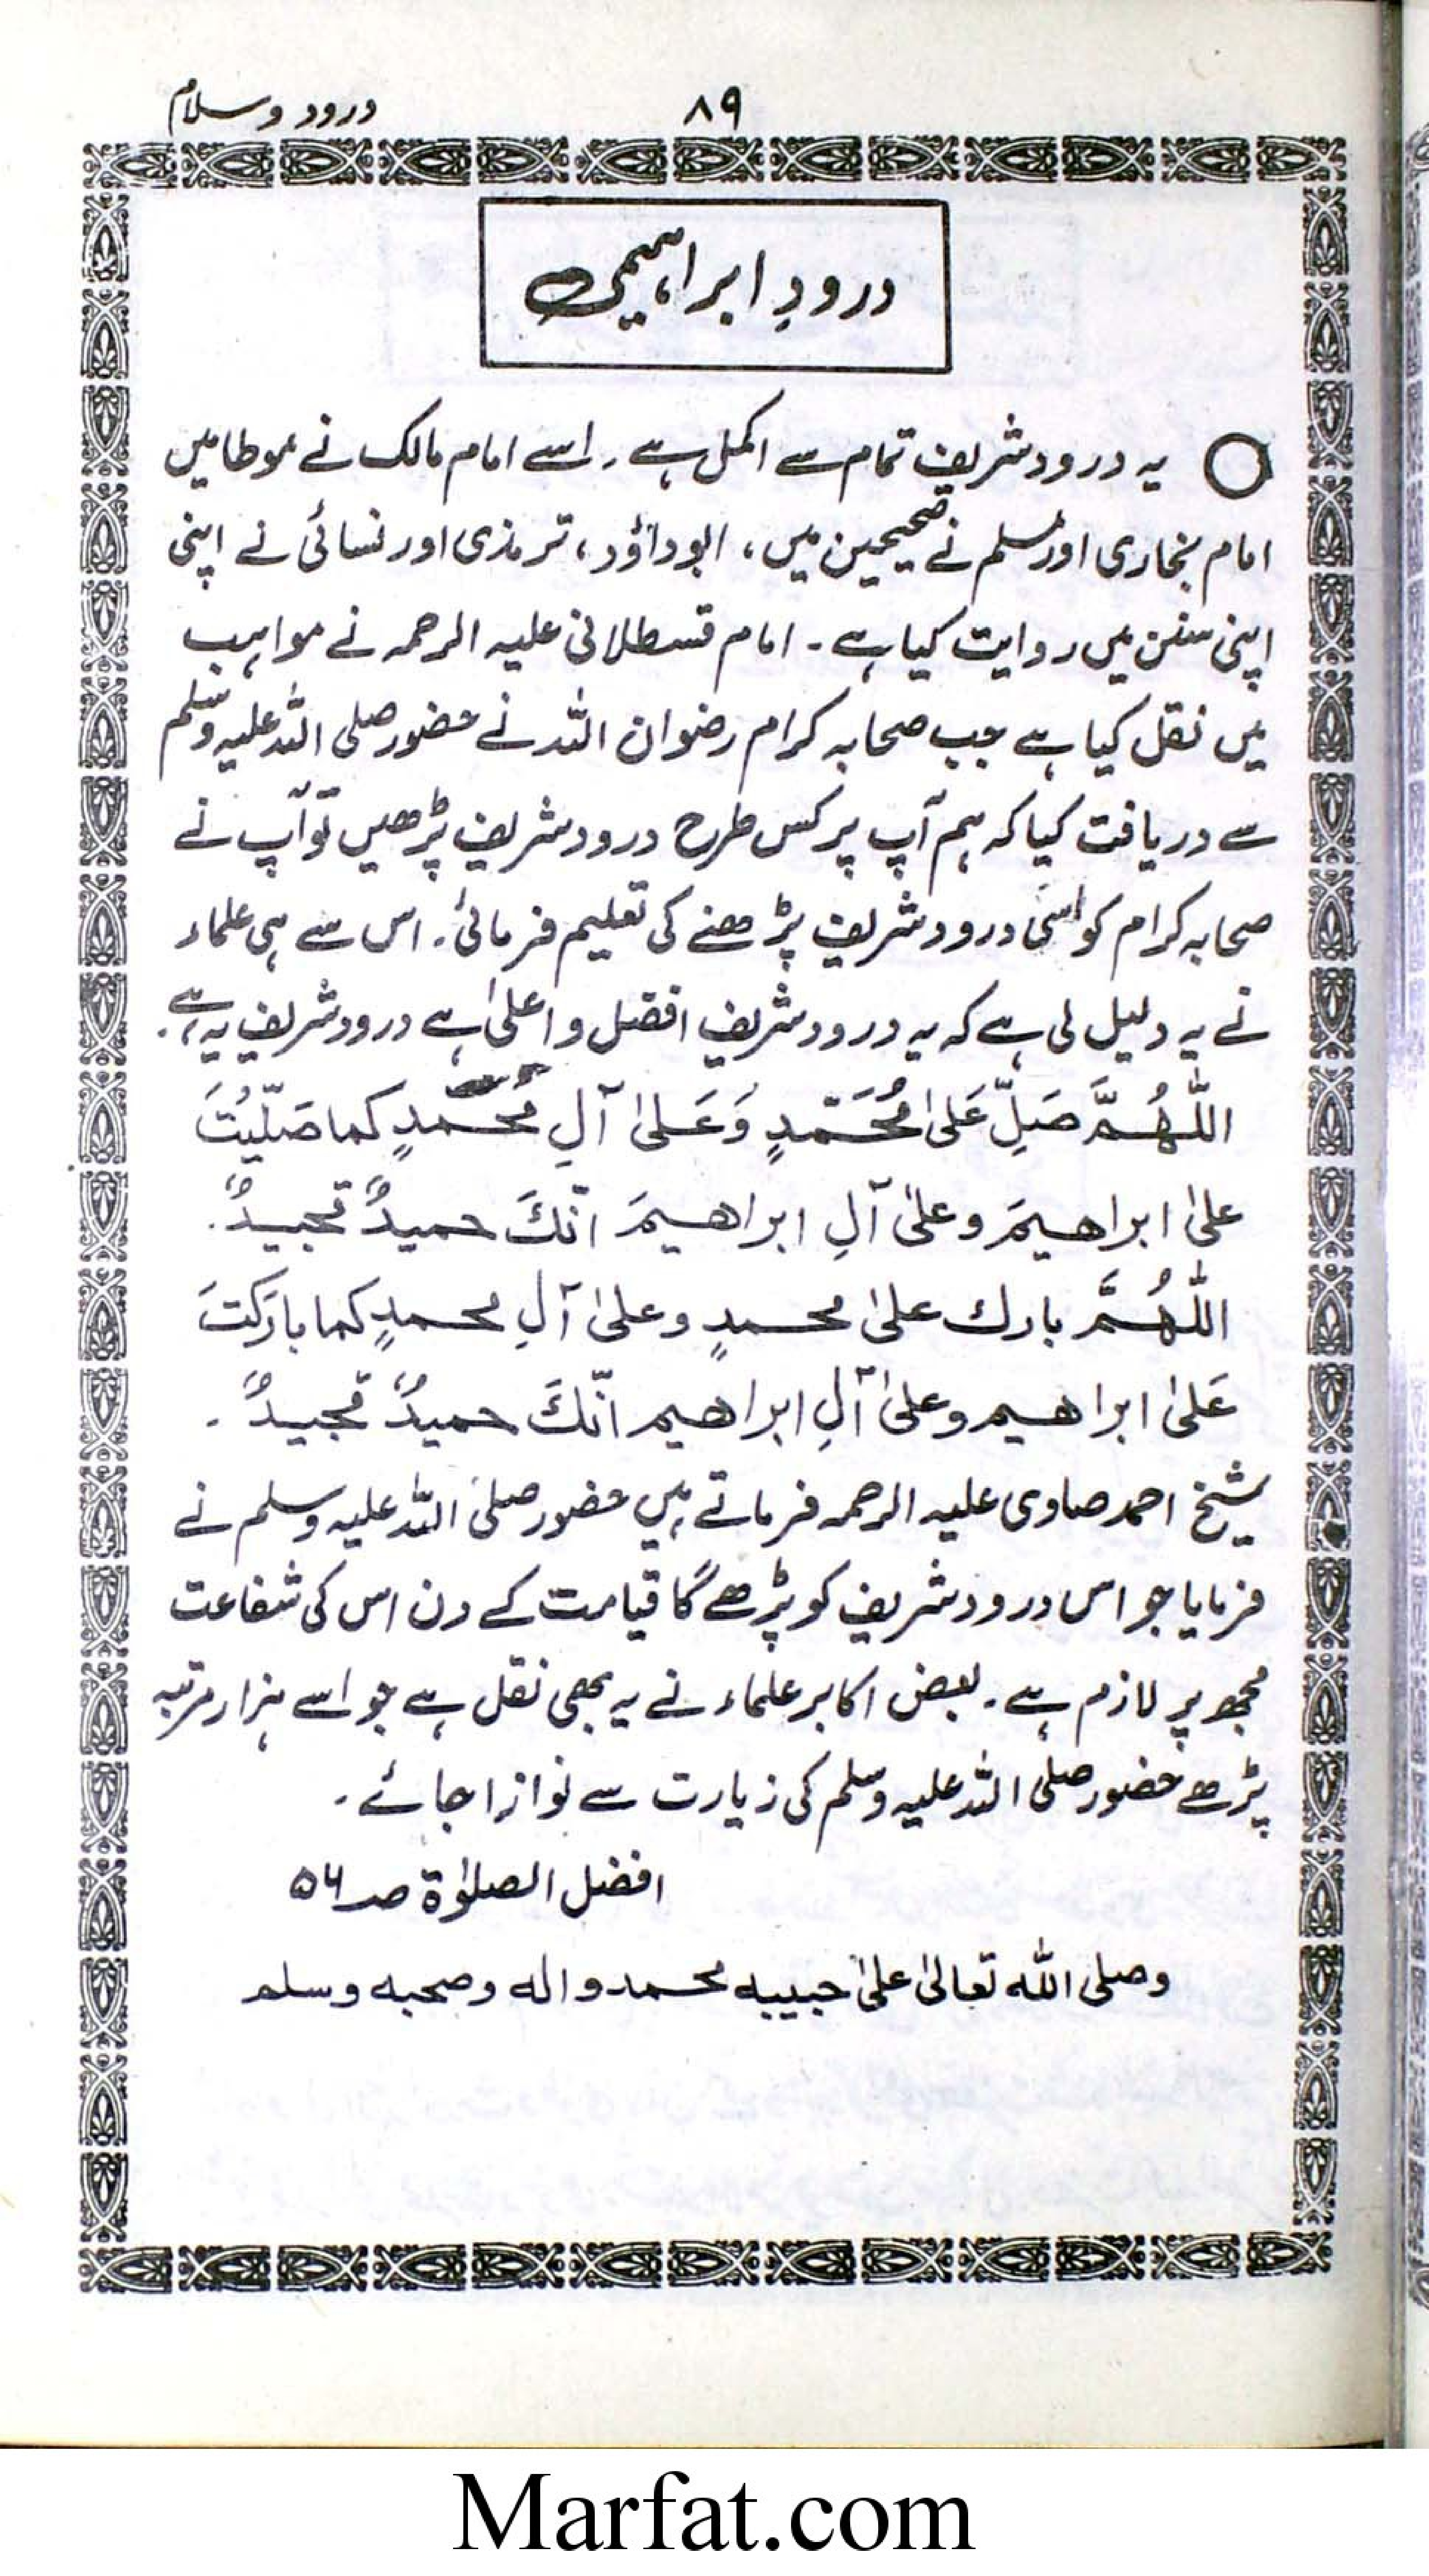 درود و سلام
۸۹
درودِ ابراہیمی
یہ درود شریف تمام سے اکمل ہے ۔ اسے امام مالک نے موطا میں
امام بخاری اور مسلم نے صحیحین میں ، ابوداؤد ، ترمذی اور نسائی نے اپنی
اپنی سنن میں روایت کیا ہے ۔ امام قسطلانی علیہ الرحمہ نے مواہب
میں نقل کیا ہے جب صحابہ کرام رضوان اللہ نے حضور صلی اللہ علیہ وسلم
سے دریافت کیا کہ ہم آپ پر کس طرح درود شریف پڑھیں تو آپ نے
صحابہ کرام کو اسی درود شریف پڑھنے کی تعلیم فرمائی ۔ اس سے ہی علماء
نے یہ دلیل لی ہے کہ یہ درود شریف افضل و اعلیٰ ہے درود شریف یہ ہے ۔
اللّٰهُمَّ صَلِّ عَلىٰ مُحَمَّدٍ وَعَلىٰ آلِ مُحَمَّدٍ كما صَلَّيْتَ
علىٰ ابراهيمَ وعلىٰ آلِ ابراهيمَ انّكَ حميدٌ مَّجيدٌ .
اللّٰهُمَّ بارك علىٰ محمدٍ وعلىٰ آلِ محمدٍ كما بارَكتَ
عَلىٰ ابراهيم وعلىٰ آلِ ابراهيم انّكَ حميدٌ مَّجيدٌ .
شیخ احمد صاوی علیہ الرحمہ فرماتے ہیں حضور صلی اللہ علیہ وسلم نے
فرمایا جو اس درود شریف کو پڑھے گا قیامت کے دن اس کی شفاعت
مجھ پر لازم ہے ۔ بعض اکابر علماء نے یہ بھی نقل ہے جو اسے ہزار مرتبہ
پڑھے حضور صلی اللہ علیہ وسلم کی زیارت سے نوازا جائے ۔
افضل الصلوٰۃ صـ ۵۶
وصلى الله تعالىٰ علىٰ حبيبه محمد واله وصحبه وسلم
Marfat.com